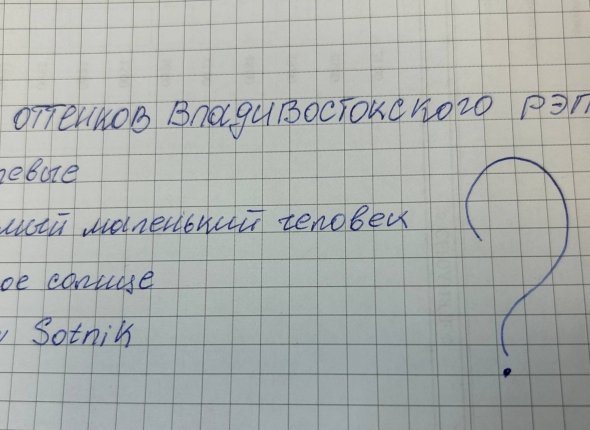 оттенков Владивостокского рэп
евые
мый маленький человек
ое солнце
Sotnik
?